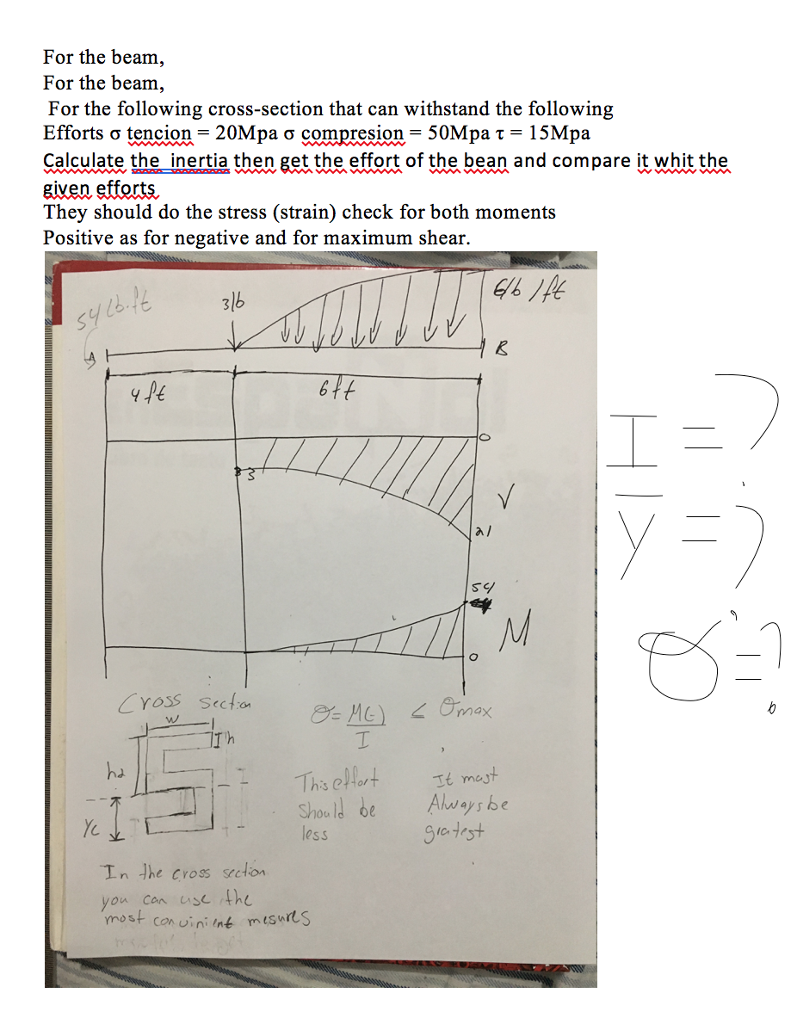 For the beam,
For the beam,
For the following cross-section that can withstand the following
Efforts σ tencion = 20Mpa σ compresion = 50Mpa τ = 15Mpa
Calculate the inertia then get the effort of the bean and compare it whit the
given efforts
They should do the stress (strain) check for both moments
Positive as for negative and for maximum shear.
54 lb.ft
3lb
6lb/ft
A
B
4ft
6ft
0
3
V
21
54
M
0
I = ?
y̅ = ?
σ = ?
Cross section
σ = M( )
I
< σmax
w
h
h2
Yc
This effort
should be
less
It must
Always be
gratest
In the cross section
you can use the
most conuinient mesures